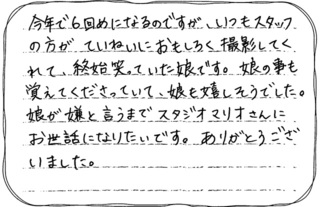 今年で6回めになるのですが、いつもスタッフ
の方が ていねいにおもしろく撮影してく
れて、終始笑っていた娘です。娘の事も
覚えてくださっていて、娘も嬉しそうでした。
娘が嫌と言うまで スタジオマリオさんに
お世話になりたいです。ありがとうござ
いました。